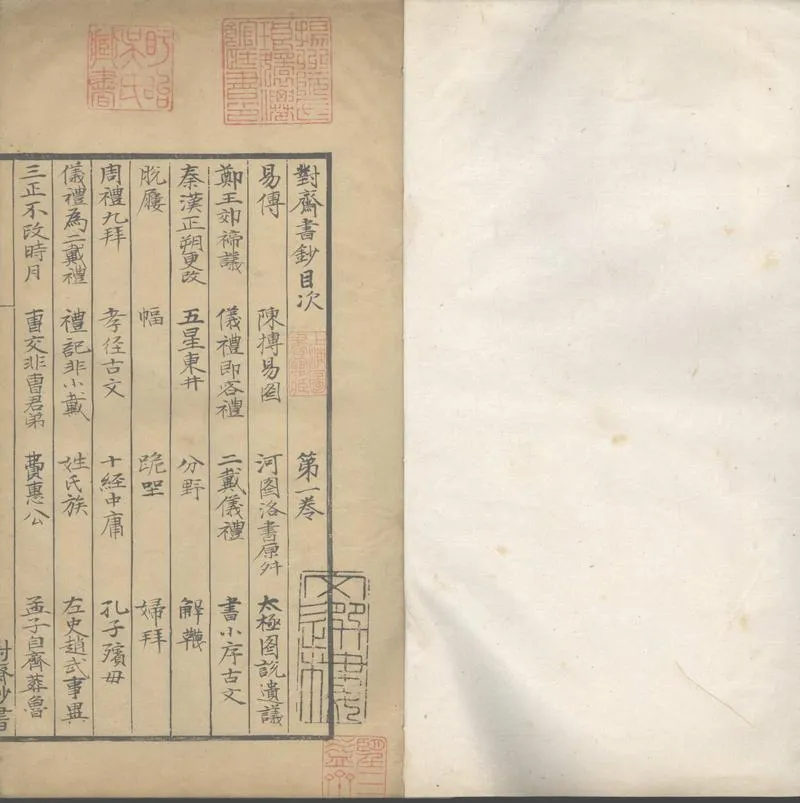 對齋書鈔目次 第一卷
易傳 陳摶易圖 河圖洛書原舛 太極图説遺議
鄭王郊禘議 儀禮即容禮 二戴儀禮 書小序古文
秦漢正朔更改 五星東井 分野 解韈
脱屨 幅 跪坐 婦拜
周禮九拜 孝径古文 十經中庸 孔子殯母
儀禮為二戴禮 禮記非小戴 姓氏族 左史趙武事異
三正不改時月 曹交非曹君弟 費惠公 孟子自齊葬魯
對齋抄書
盱眙吳氏藏書